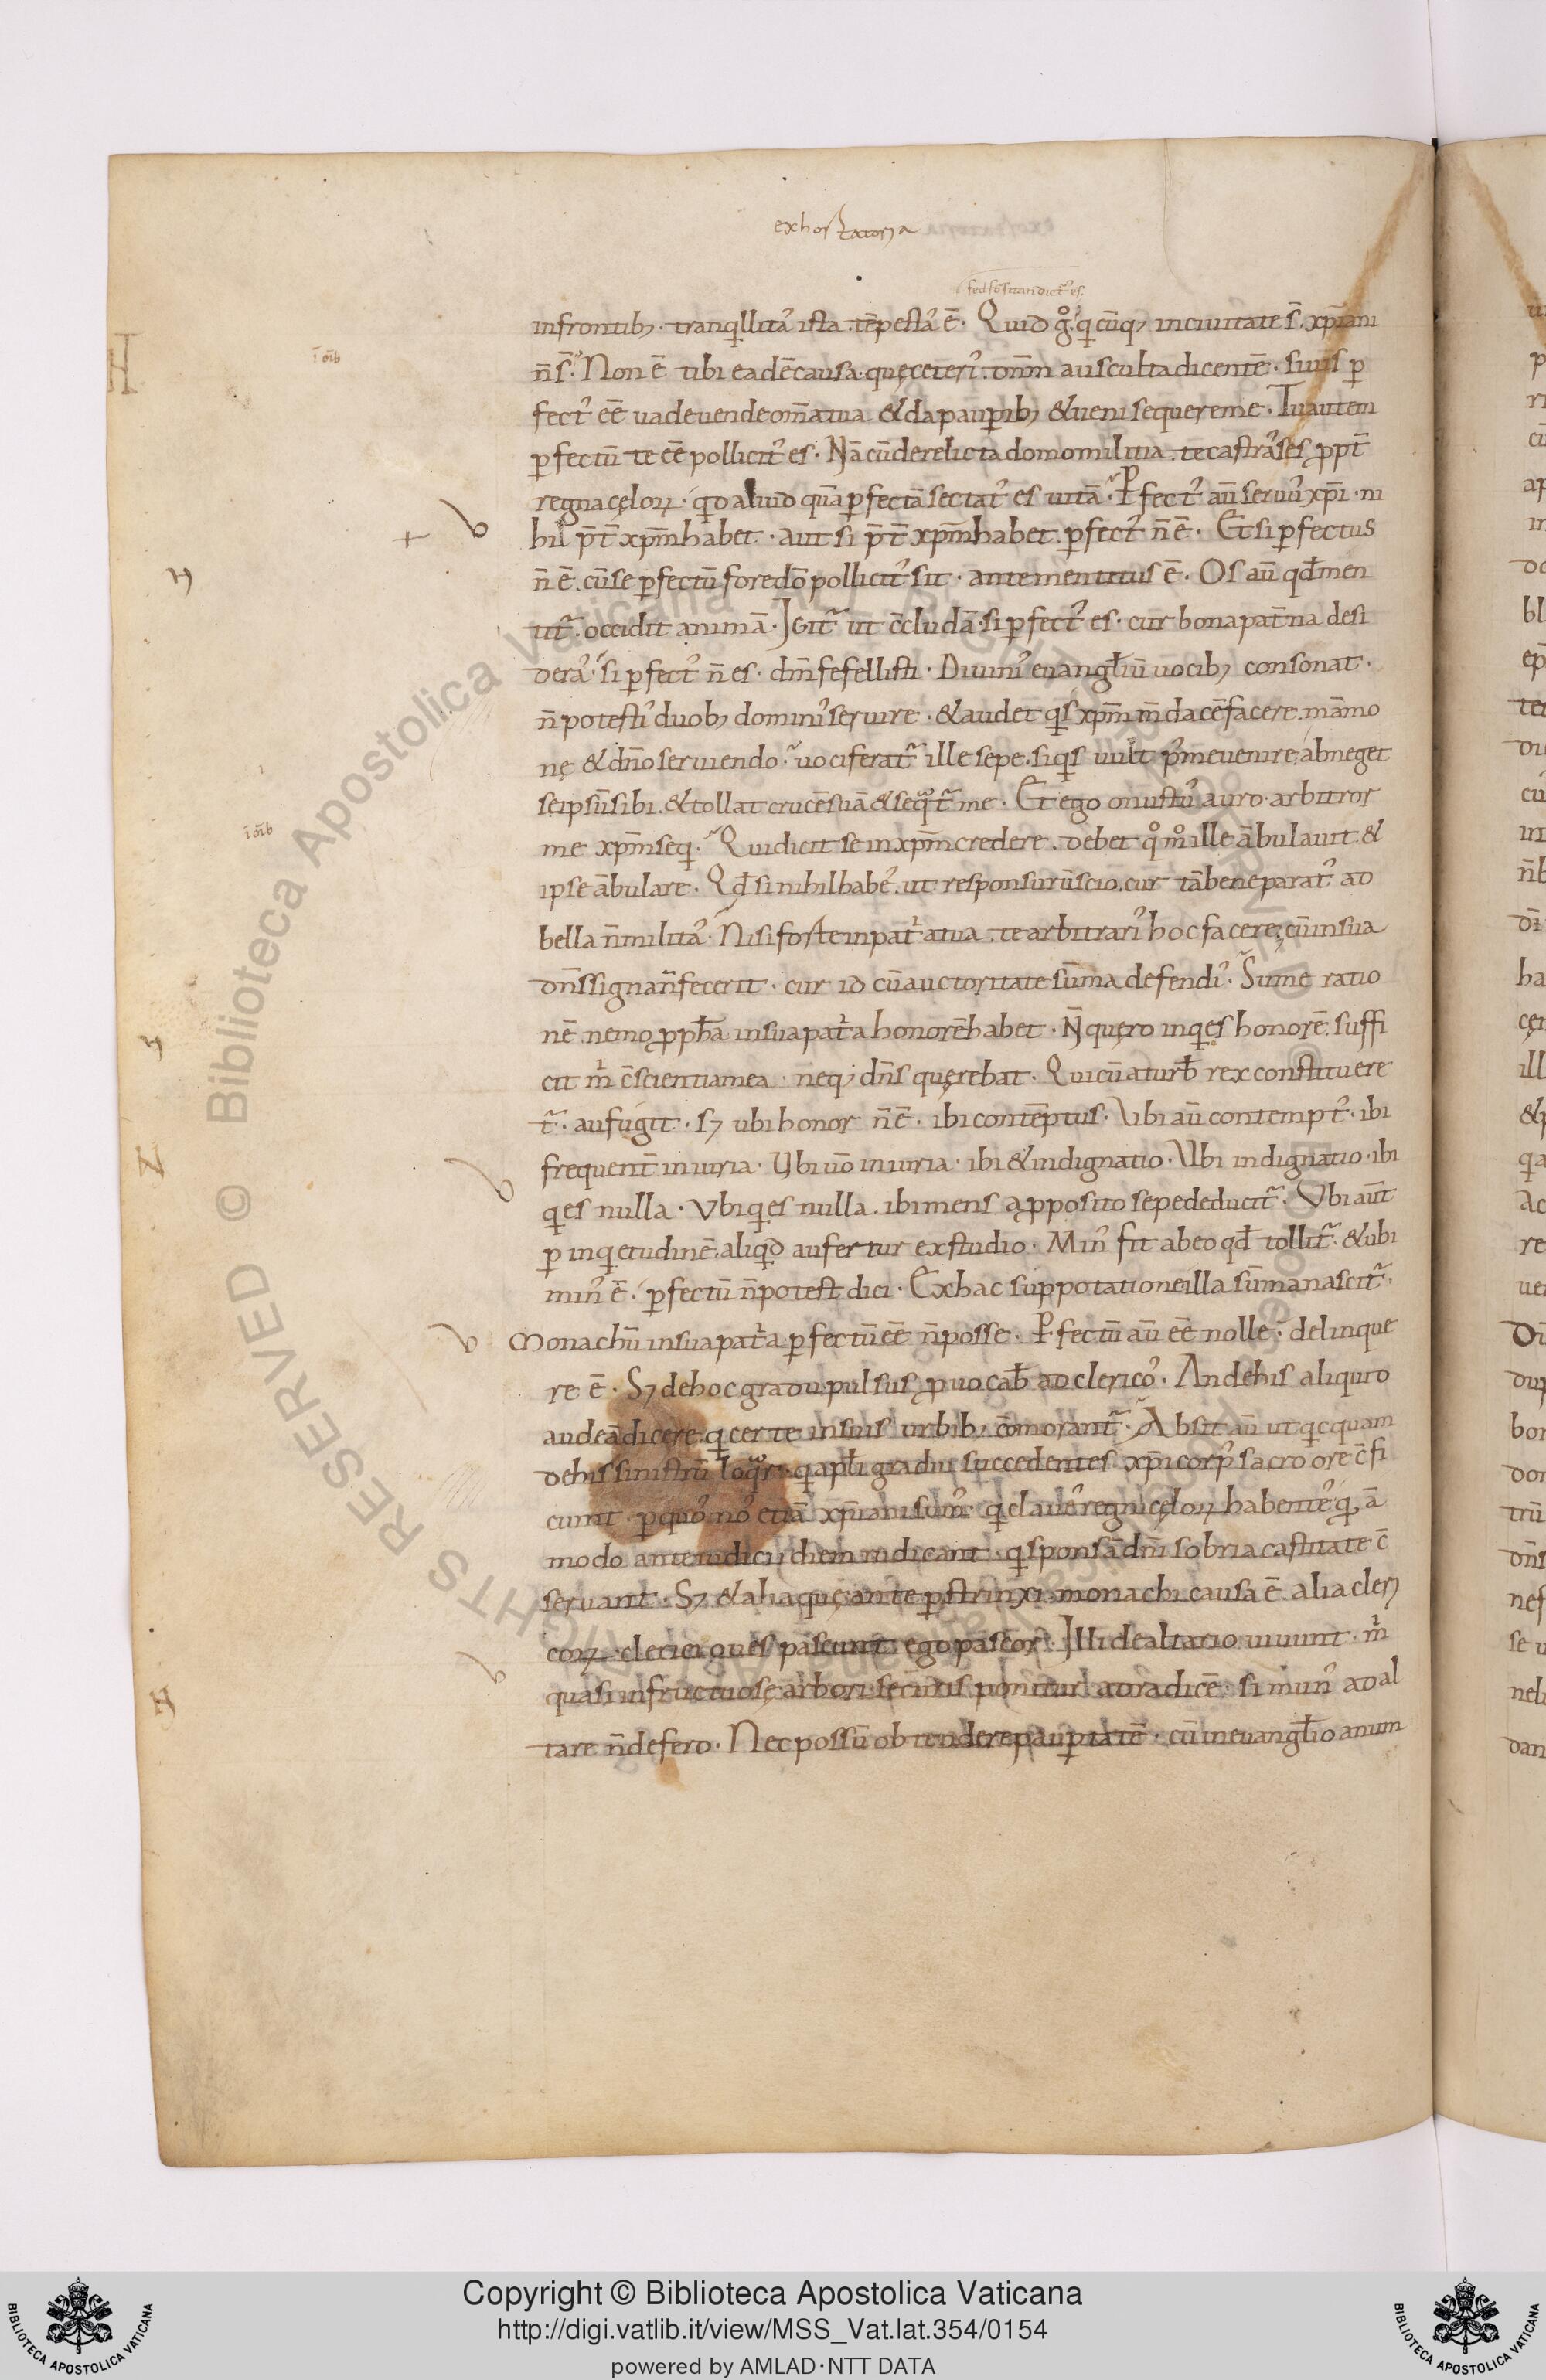 exhortatoria
sed forsitan dictꝰ es
in frontib; · tranqͥllitaˀ ista tēpestaˀ ē · Quid gͦ? qͥcūq; in ciuitate s̄ · xp̄iani
n̄ s̄? Non ē tibi eadē causa · quę ceteriˀ · dn̄m ausculta dicentē · si uis ꝑ
fectˀ eē uade uende om̄a tua & da pauꝑib; & ueni sequere me · Tu autem
ꝑfectū te eē pollicitˀ es · Nā cū derelicta domo militia · te castraˀses ꝓpt̄
regna cęloꝝ · qͥd aliud quā ꝑfectā sectatˀ es uitā? Ꝑfectˀ aū seruuˀ xp̄i · ni
hil p̄t̄ xp̄m habet · aut si p̄t̄ xp̄m habet · ꝑfectˀ n̄ ē · Et si ꝑfectus
n̄ ē · cū se ꝑfectū fore dō pollicitˀ sit · ante mentitus ē · Os aū qd̄ men
titˀ · occidit animā · Igitˀ ut c̄cludā · si ꝑfectˀ es · cur bona pat̄na desi
deraˀ? si ꝑfectˀ n̄ es · dn̄m fefellisti · Diuiniˀ euangl̄iū uocib; consonat ·
n̄ potestiˀ duob; dominiˀ seruire · & audet qͥs xp̄m m̄dacē facere · māmo
nę & dn̄o seruiendo? uociferatˀ ille sepe · si qͥs uult pˀ me uenire · abneget
se ipsū sibi · & tollat crucē suā & seqͣt̄ me · Et ego onustuˀ auro · arbitror
me xp̄m seqͥ? Qui dicit se in xp̄m credere · debet qͦmͦ ille ābulauit · &
ipse ābulare · Qd̄ si nihil habeˀ · ut responsurū scio · cur tā bene paratˀ ad
bella n̄ militaˀ? Nisi forte in patͥa tua · te arbitrariˀ hoc facere · cū in sua
dn̄s signa n̄ fecerit · cur id cū auctoritate sūma defendiˀ? Sume ratio
nē · nemo ꝓph̄a in sua patͥa honorē habet · N̄ quero inqͥes honorē · suffi
cit mͥ c̄scientia mea · neq; dn̄s quęrebat · Qui cū a turb̄ rex constituere
tˀ · aufugit · s; ubi honor n̄ ē · ibi contēptus · Ubi aū contemptˀ · ibi
frequent̄ iniuria · Ubi uō iniuria · ibi & indignatio · Ubi indignatio · ibi
qͥes nulla · Ubi qͥes nulla · ibi mens a ꝓposito sepe deducitˀ · Ubi aūt
ꝑ inqͥetudinē · aliqͥd aufertur ex studio · Minˀ fit ab eo qd̄ tollitˀ · & ubi
minˀ ē · ꝑfectū n̄ potest dici · Ex hac suppotatione illa sūma nascitˀ ·
Monachū in sua patͥa ꝑfectū eē n̄ posse · Ꝑfectū aū eē nolle · delinque
re ē · S; de hoc gradu pulsus ꝓuocab̄ ad clericoˀ · An de his aliquid
audeā dicere · qͥ certe in suis urbib; c̄morantˀ? Absit aū ut qͥcquam
de his sinistrū loqͣr · qͥ apl̄i gradui succedentes · xp̄i corpˀ sacro ore c̄fi
ciunt · ꝑ quoˀ noˀ etiā xp̄iani sumˀ · qͥ claueˀ regni cęloꝝ habenteˀ qͦdā
modo ante iudicii diem iudicant · qͥ sponsā dn̄i sobria castitate c̄
seruant · S; & alia quę ante ꝑstrinxi · monachi causa ē · alia cleri
coꝝ · clerici oues pascunt · ego pascor · Illi de altario uiuunt · mͥ
quasi infructuosę arbori · securis ponitur ad radicē · si munˀ ad al
tare n̄ defero · Nec possū obtendere pauꝑtatē · cū in euangl̄io anum
Copyright © Biblioteca Apostolica Vaticana
http://digi.vatlib.it/view/MSS_Vat.lat.354/0154
powered by AMLAD·NTT DATA